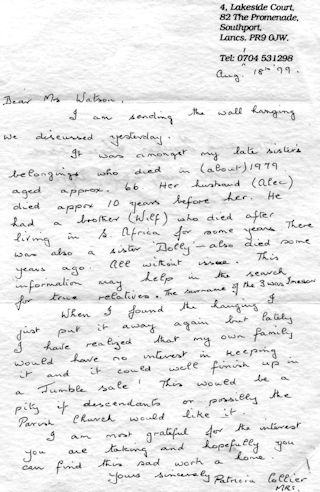 4, Lakeside Court,
82 The Promenade,
Southport,
Lancs, PR9 0JW.
Tel: 0704 531298
Aug. 18th 99.
Dear Mrs Watson,
I am sending the wall hanging
we discussed yesterday.
It was amongst my late sister's
belongings who died in (about) 1979
aged approx. 66. Her husband (Alec)
died approx 10 years before her. He
had a brother (Wilf) who died after
living in S. Africa for some years. There
was also a sister Dolly - also died some
years ago. All without issue. This
information may help in the search
for true relatives. The surname of the 3 was Imeson
When I found the hanging I
just put it away again but lately
I have realized that my own family
would have no interest in keeping
it and it could well finish up in
a Jumble sale! This would be a
pity if descendants or possibly the
Parish Church would like it.
I am most grateful for the interest
you are taking and hopefully you
can find this sad work a home.
Yours sincerely Patricia Collier
MRS.